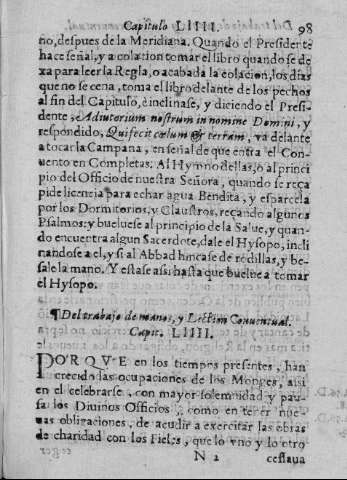 Capitulo LIIII. 98
ño, despues de la Meridiana. Quando el Presidente
hace señal, y a colation tomar el libro quando se de-
xa para leer la Regla, o acabada la colacion, los dias
que no se cena, toma el libro delante de los pechos
al fin del Capitulo, è inclinase, y diciendo el Presi-
dente, Adiutorium nostrum in nomine Domini, y
respondido, Qui fecit cœlum & terram, va delante
a tocar la Campana, en señal de que entra el Con-
uento en Completas. Al Hymno dellas, o al princi-
pio del Officio de nuestra Señora, quando se reça
pide licencia para echar agua Bendita, y esparcela
por los Dormitorios, y Claustros, reçando algunos
Psalmos: y bueluese al principio de la Salue, y quan-
do encuentra algun Sacerdote, dale el Hysopo, incli
nandose a el, y si al Abbad hincase de rodillas, y be-
sale la mano. Y estase asi hasta que buelue a tomar
el Hysopo.
¶ Del trabajo de manos, y Lection Conuentual.
Capit. LIIII.
PORQVE en los tiempos presentes, han
crecido las ocupaciones de los Monges, asi
en el celebrarse, con mayor solemnidad y pau-
sa los Diuinos Officios, como en tener nue-
uas obligaciones, de acudir a exercitar las obras
de charidad con los Fieles, que lo vno y lo otro
N 2 cessaua